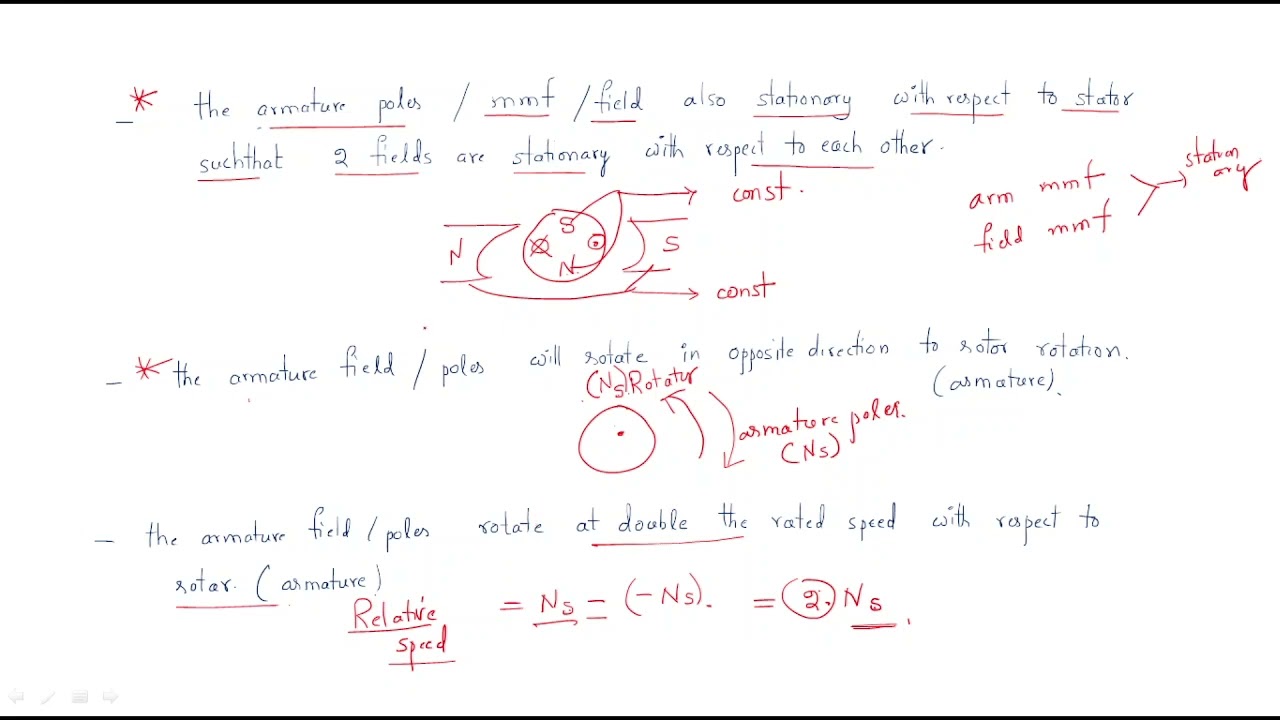 * the armature poles / mmf / field also stationary with respect to stator
suchthat 2 fields are stationary with respect to each other.
station
ary
arm mmf
field mmf
const.
S
N
S
N
const
* the armature field / poles will rotate in opposite direction to rotor rotation.
(armature).
(Ns)Rotatur
armature poles.
(Ns)
- the armature field / poles rotate at double the rated speed with respect to
rotar. (armature)
Relative
speed
= Ns = (-Ns). = 2. Ns